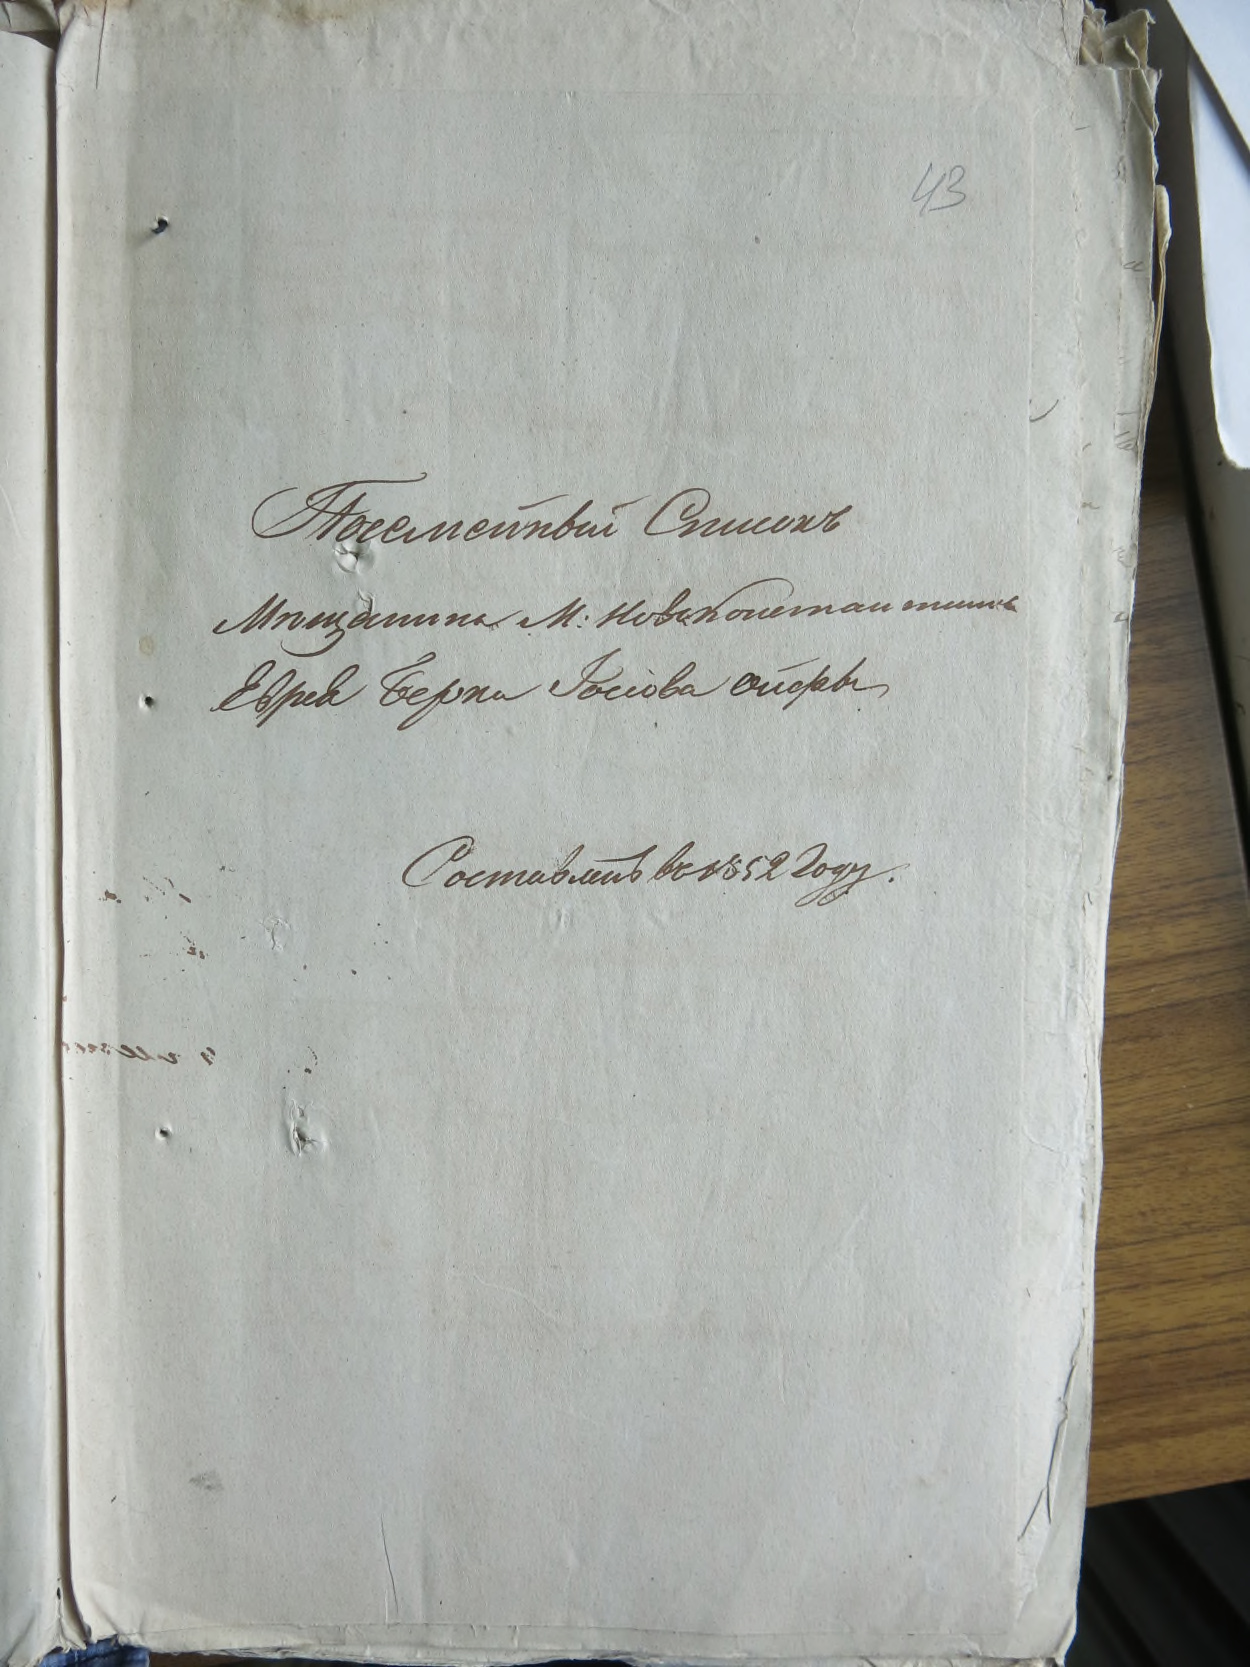 43
Посемейный Списокъ
Мѣщанина М: Новоконстантинова
Еврея Берка Іосіова Ойфры
Составленъ въ 1852 Году.